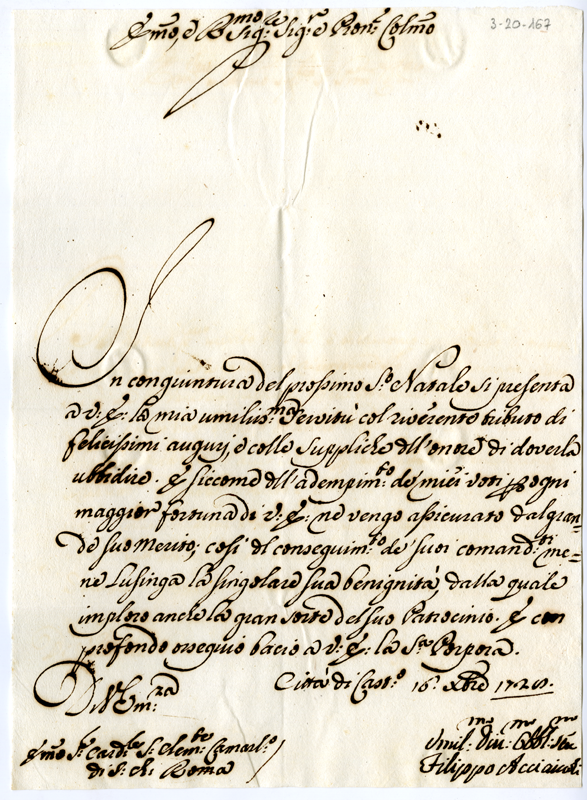 3-20-167
Emo, e Rmo Sig:re Sig:r e Pron: Colmo
In congiuntura del prossimo S:o Natale si presenta
a V: E: la mia umiliss:ma servitù col riverente tributo di
felicissimi augurj, e colle suppliche dell'onore di doverla
ubbidire. E siccome dell'adempim:to de miei voti p ogni
maggior fortuna di V: E: ne vengo assicurato dal gran-
de suo merito; così del conseguim:to de suoi comand:ti me-
ne lusinga la singolare sua benignità, dalla quale
imploro anche la gran sorte del suo Patrocinio. E con
profondo ossequio bacio a V: E: la S:a Porpora.
Di V: Em:za
Città di Cast:o 16: Xbre
Emo S:r Card:le S: Clem:te Camarl:o
di S: Ch: Roma
Umil: Div: Obbl: Ser
Filippo Acciaioli